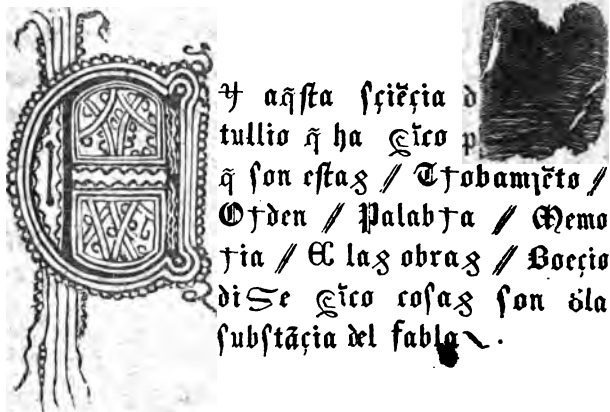 E
y aq̃sta sçiẽçia d
tullio q̃ ha çĩco p
q̃ son estas / Trobamiẽto /
Orden // Palabra // Memo
ria // E las obras // Boeçio
dise çĩco cosas son d̃la
substãçia del fabla .